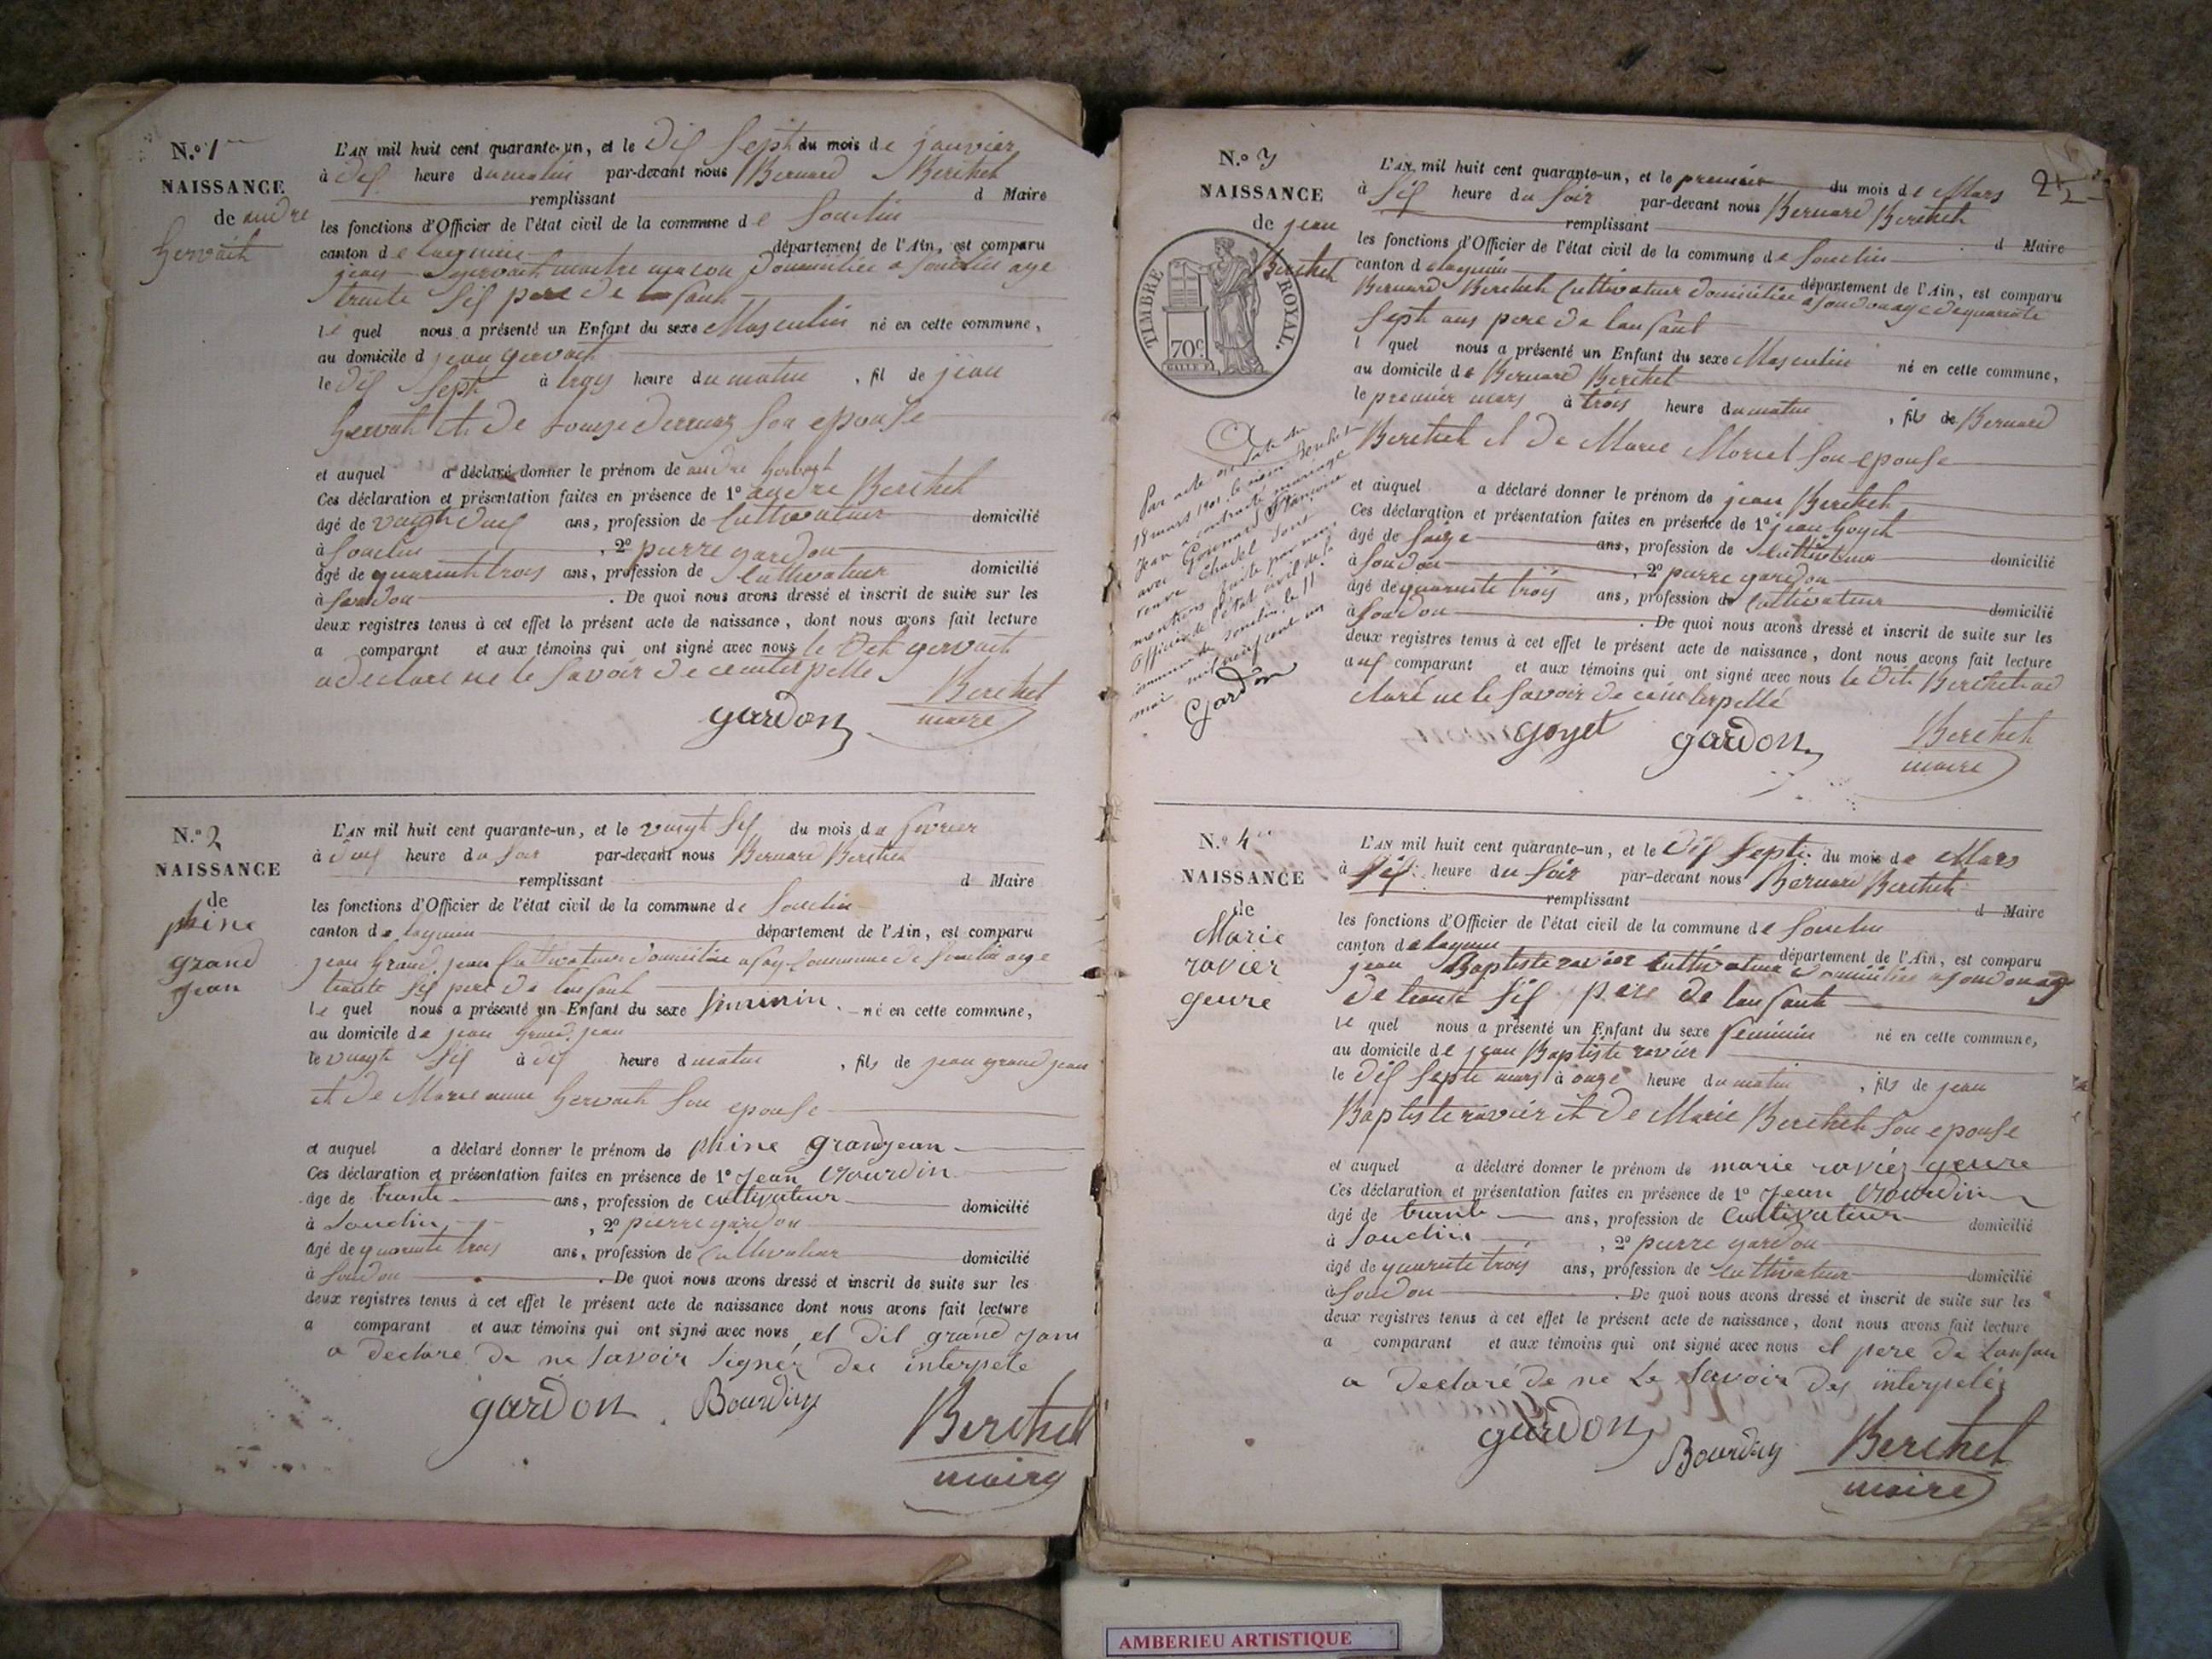 N.º 1
NAISSANCE
de andre
Gervait
L'AN mil huit cent quarante-un, et le dix sept du mois de janvier
à dix heure du matin par-devant nous Bernard Berthet
remplissant d Maire
les fonctions d'Officier de l'état civil de la commune de Souclin
canton de lagnieu département de l'Ain, est comparu
jean gervait maitre macon domicilié a Souclin age
trente six pere de lenfant
le quel nous a présenté un Enfant du sexe Masculin né en cette commune,
au domicile d jean gervait
le dix sept à trois heure du matin , fil de jean
Gervait et de son epouse
et auquel a déclaré donner le prénom de andre Gervait
Ces déclaration et présentation faites en présence de 1º andre Berthet
âgé de ans, profession de Cultivateur domicilié
à Souclin , 2º pierre gardon
âgé de quarente trois ans, profession de Cultivateur domicilié
à Soudon . De quoi nous avons dressé et inscrit de suite sur les
deux registres tenus à cet effet le présent acte de naissance, dont nous avons fait lecture
a comparant et aux témoins qui ont signé avec nous le dit gervait
a declaré ne le savoir de ce interpellé
gardon Berthet
maire
N.º 2
NAISSANCE
de
phine
grand
jean
L'AN mil huit cent quarante-un, et le vingt six du mois de fevrier
à heure du soir par-devant nous Bernard Berthet
remplissant d Maire
les fonctions d'Officier de l'état civil de la commune de Souclin
canton de lagnieu département de l'Ain, est comparu
jean Grand jean Cultivateur domicilié a commune de Souclin age
trente six pere de lenfant
le quel nous a présenté un Enfant du sexe feminin né en cette commune,
au domicile de jean Grand jean
le vingt six à dix heure d matin , fils de jean grand jean
et de Marie anne Gervait son epouse
et auquel a déclaré donner le prénom de phine grandjean
Ces déclaration et présentation faites en présence de 1º Jean Bourdin
âgé de trante ans, profession de cultivateur domicilié
à Souclin , 2º pierre gardon
âgé de quarente trois ans, profession de Cultivateur domicilié
à Soudon . De quoi nous avons dressé et inscrit de suite sur les
deux registres tenus à cet effet le présent acte de naissance dont nous avons fait lecture
a comparant et aux témoins qui ont signé avec nous et dit grand jean
a declare de ne savoir signér interpele
gardon Bourdin
Berthet
maire
N.º 3
NAISSANCE
de jean
Berthet
TIMBRE ROYAL.
70 c
2
L'AN mil huit cent quarante-un, et le premier du mois de Mars
à six heure du soir par-devant nous Bernard Berthet
remplissant d Maire
les fonctions d'Officier de l'état civil de la commune de Souclin
canton de lagnieu département de l'Ain, est comparu
Bernard Berthet Cultivateur domicilié a Soudon age de quarente
sept ans pere de lenfant
l quel nous a présenté un Enfant du sexe Masculin né en cette commune,
au domicile de Bernard Berthet
le premier mars à trois heure du matin , fils de Bernard
Berthet et de Marie Moriel son epouse
et auquel a déclaré donner le prénom de jean Berthet
Ces déclaration et présentation faites en présence de 1º jean Goyet
âgé de ans, profession de Cultivateur domicilié
à Soudon , 2º pierre gardon
âgé de quarente trois ans, profession de Cultivateur domicilié
à Soudon . De quoi nous avons dressé et inscrit de suite sur les
deux registres tenus à cet effet le présent acte de naissance, dont nous avons fait lecture
comparant et aux témoins qui ont signé avec nous le dit Berthet a dé
claré ne le savoir de ce interpellé
goyet gardon Berthet
maire
Par acte en date du
18 mars 1901 le Berthet
Jean a contracté mariage
avec Françoise
veuve Chadel dont
mention faite par nous
Officier de l'état civil de la
commune de Souclin le 11
mai mil neuf cent un
Gardon
N.º 4
NAISSANCE
de
Marie
ravier
geure
L'AN mil huit cent quarante-un, et le dix sept du mois de Mars
à six heure du soir par-devant nous Bernard Berthet
remplissant d Maire
les fonctions d'Officier de l'état civil de la commune de Souclin
canton de lagnieu département de l'Ain, est comparu
jean Baptiste ravier cultivateur domicilié a Soudon age
de trente six pere de lenfant
le quel nous a présenté un Enfant du sexe feminin né en cette commune,
au domicile de jean Baptiste ravier
le dix sept mars à onze heure du matin , fils de jean
Baptiste ravier et de Marie Berthet son epouse
et auquel a déclaré donner le prénom de marie ravier geure
Ces déclaration et présentation faites en présence de 1º Jean Bourdin
âgé de trante ans, profession de Cultivateur domicilié
à Souclin , 2º pierre gardon
âgé de quarente trois ans, profession de Cultivateur domicilié
à Soudon . De quoi nous avons dressé et inscrit de suite sur les
deux registres tenus à cet effet le présent acte de naissance, dont nous avons fait lecture
a comparant et aux témoins qui ont signé avec nous et pere de Lanfan
a declaré de ne Le savoir interpelér
gardon Bourdin Berthet
maire
AMBERIEU ARTISTIQUE